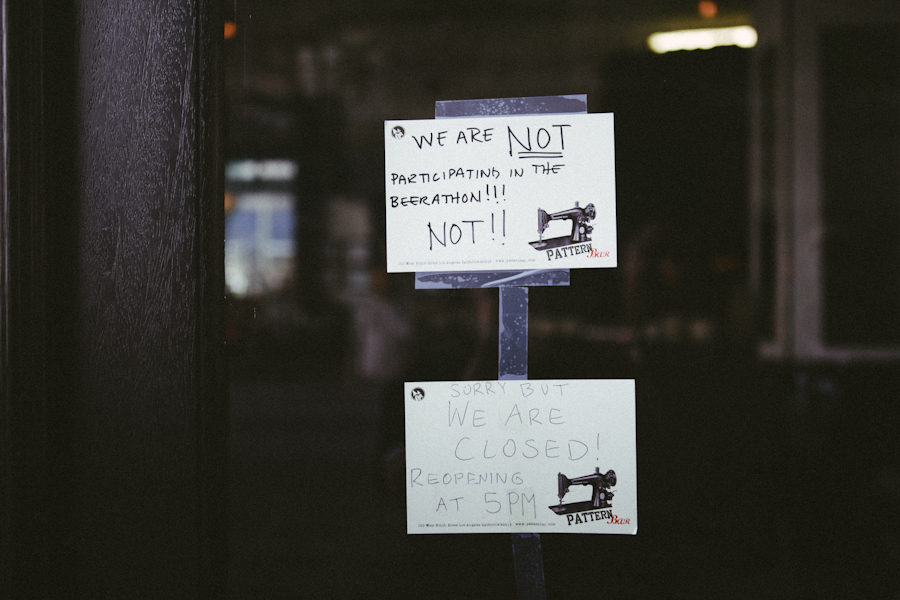 WE ARE NOT
PARTICIPATING IN THE
BEERATHON!!!
NOT!!
PATTERN Bar
SORRY BUT
WE ARE
CLOSED!
REOPENING
AT 5PM
PATTERN Bar